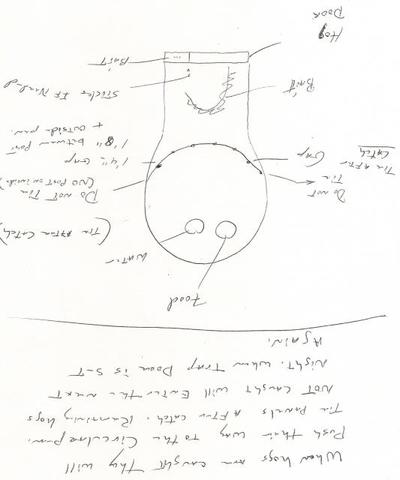 When hogs are caught they will
Push their way to the Circular pen.
Tie Panels After catch. Remaining hogs
Not caught will Enter the next
Night. when Trap Door is Set
Again.
Food
water
(Tie After Catch)
Do not
Tie
Do not Tie
(No Post on inside)
Tie After
Catch
Gap
1'4" Gap
1'8" between Post
+ outside pen.
Bait
Sticks If Needed
Bait
Hog
Door